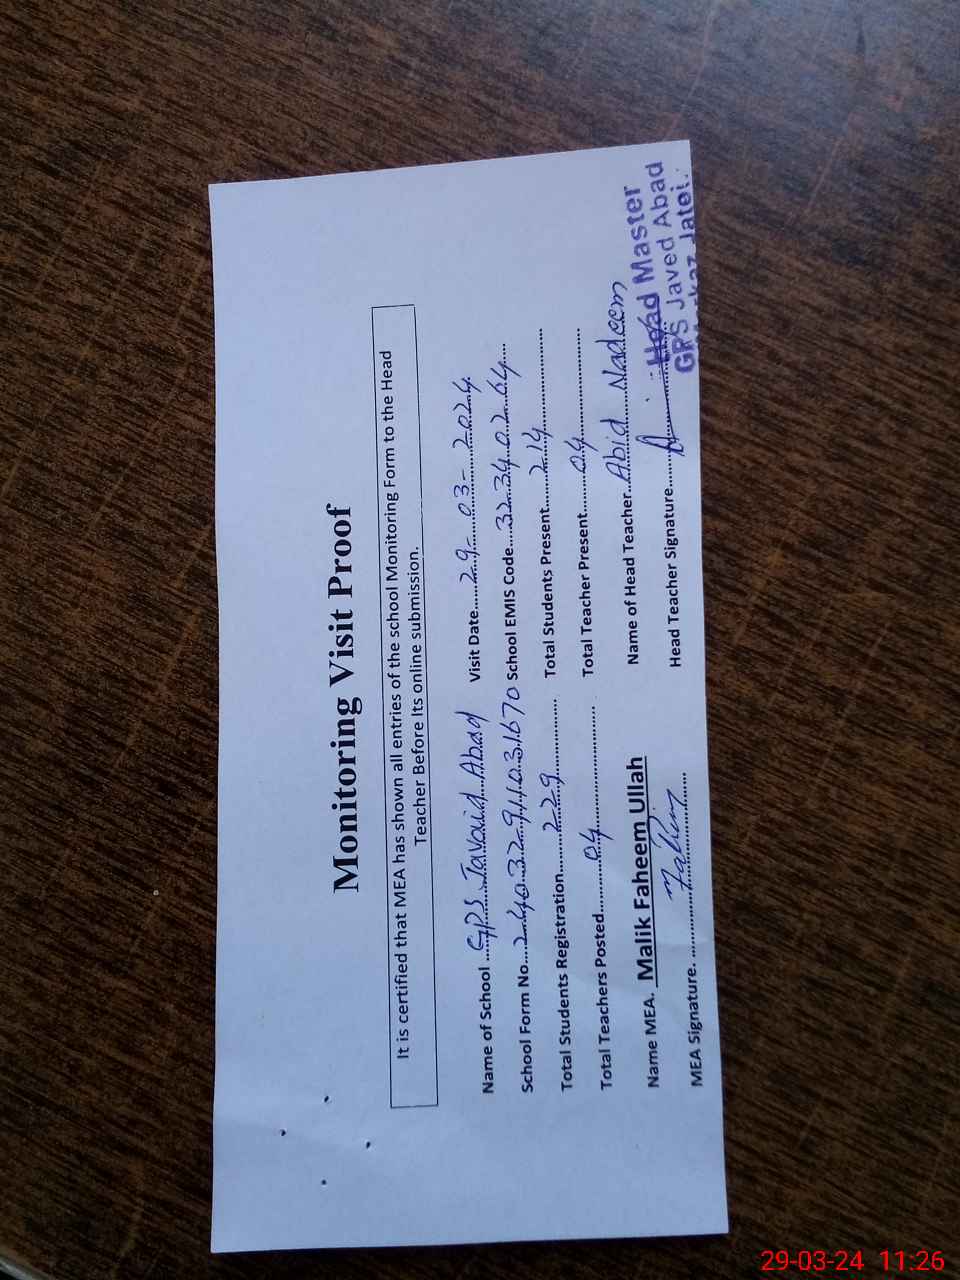 Monitoring Visit Proof
It is certified that MEA has shown all entries of the school Monitoring Form to the Head
Teacher Before Its online submission.
Name of School ......GPS Javaid Abad Visit Date......29-03-2024
School Form No....24032941031670 School EMIS Code....32340264....
Total Students Registration.......229.......... Total Students Present.......214..........
Total Teachers Posted..........04.......... Total Teacher Present.......04..........
Name MEA. Malik Faheem Ullah Name of Head Teacher..Abid Nadeem
MEA Signature. ....Faheem.... Head Teacher Signature..........
Head Master
GPS Javed Abad
Markaz Jatoi.
29-03-24 11:26